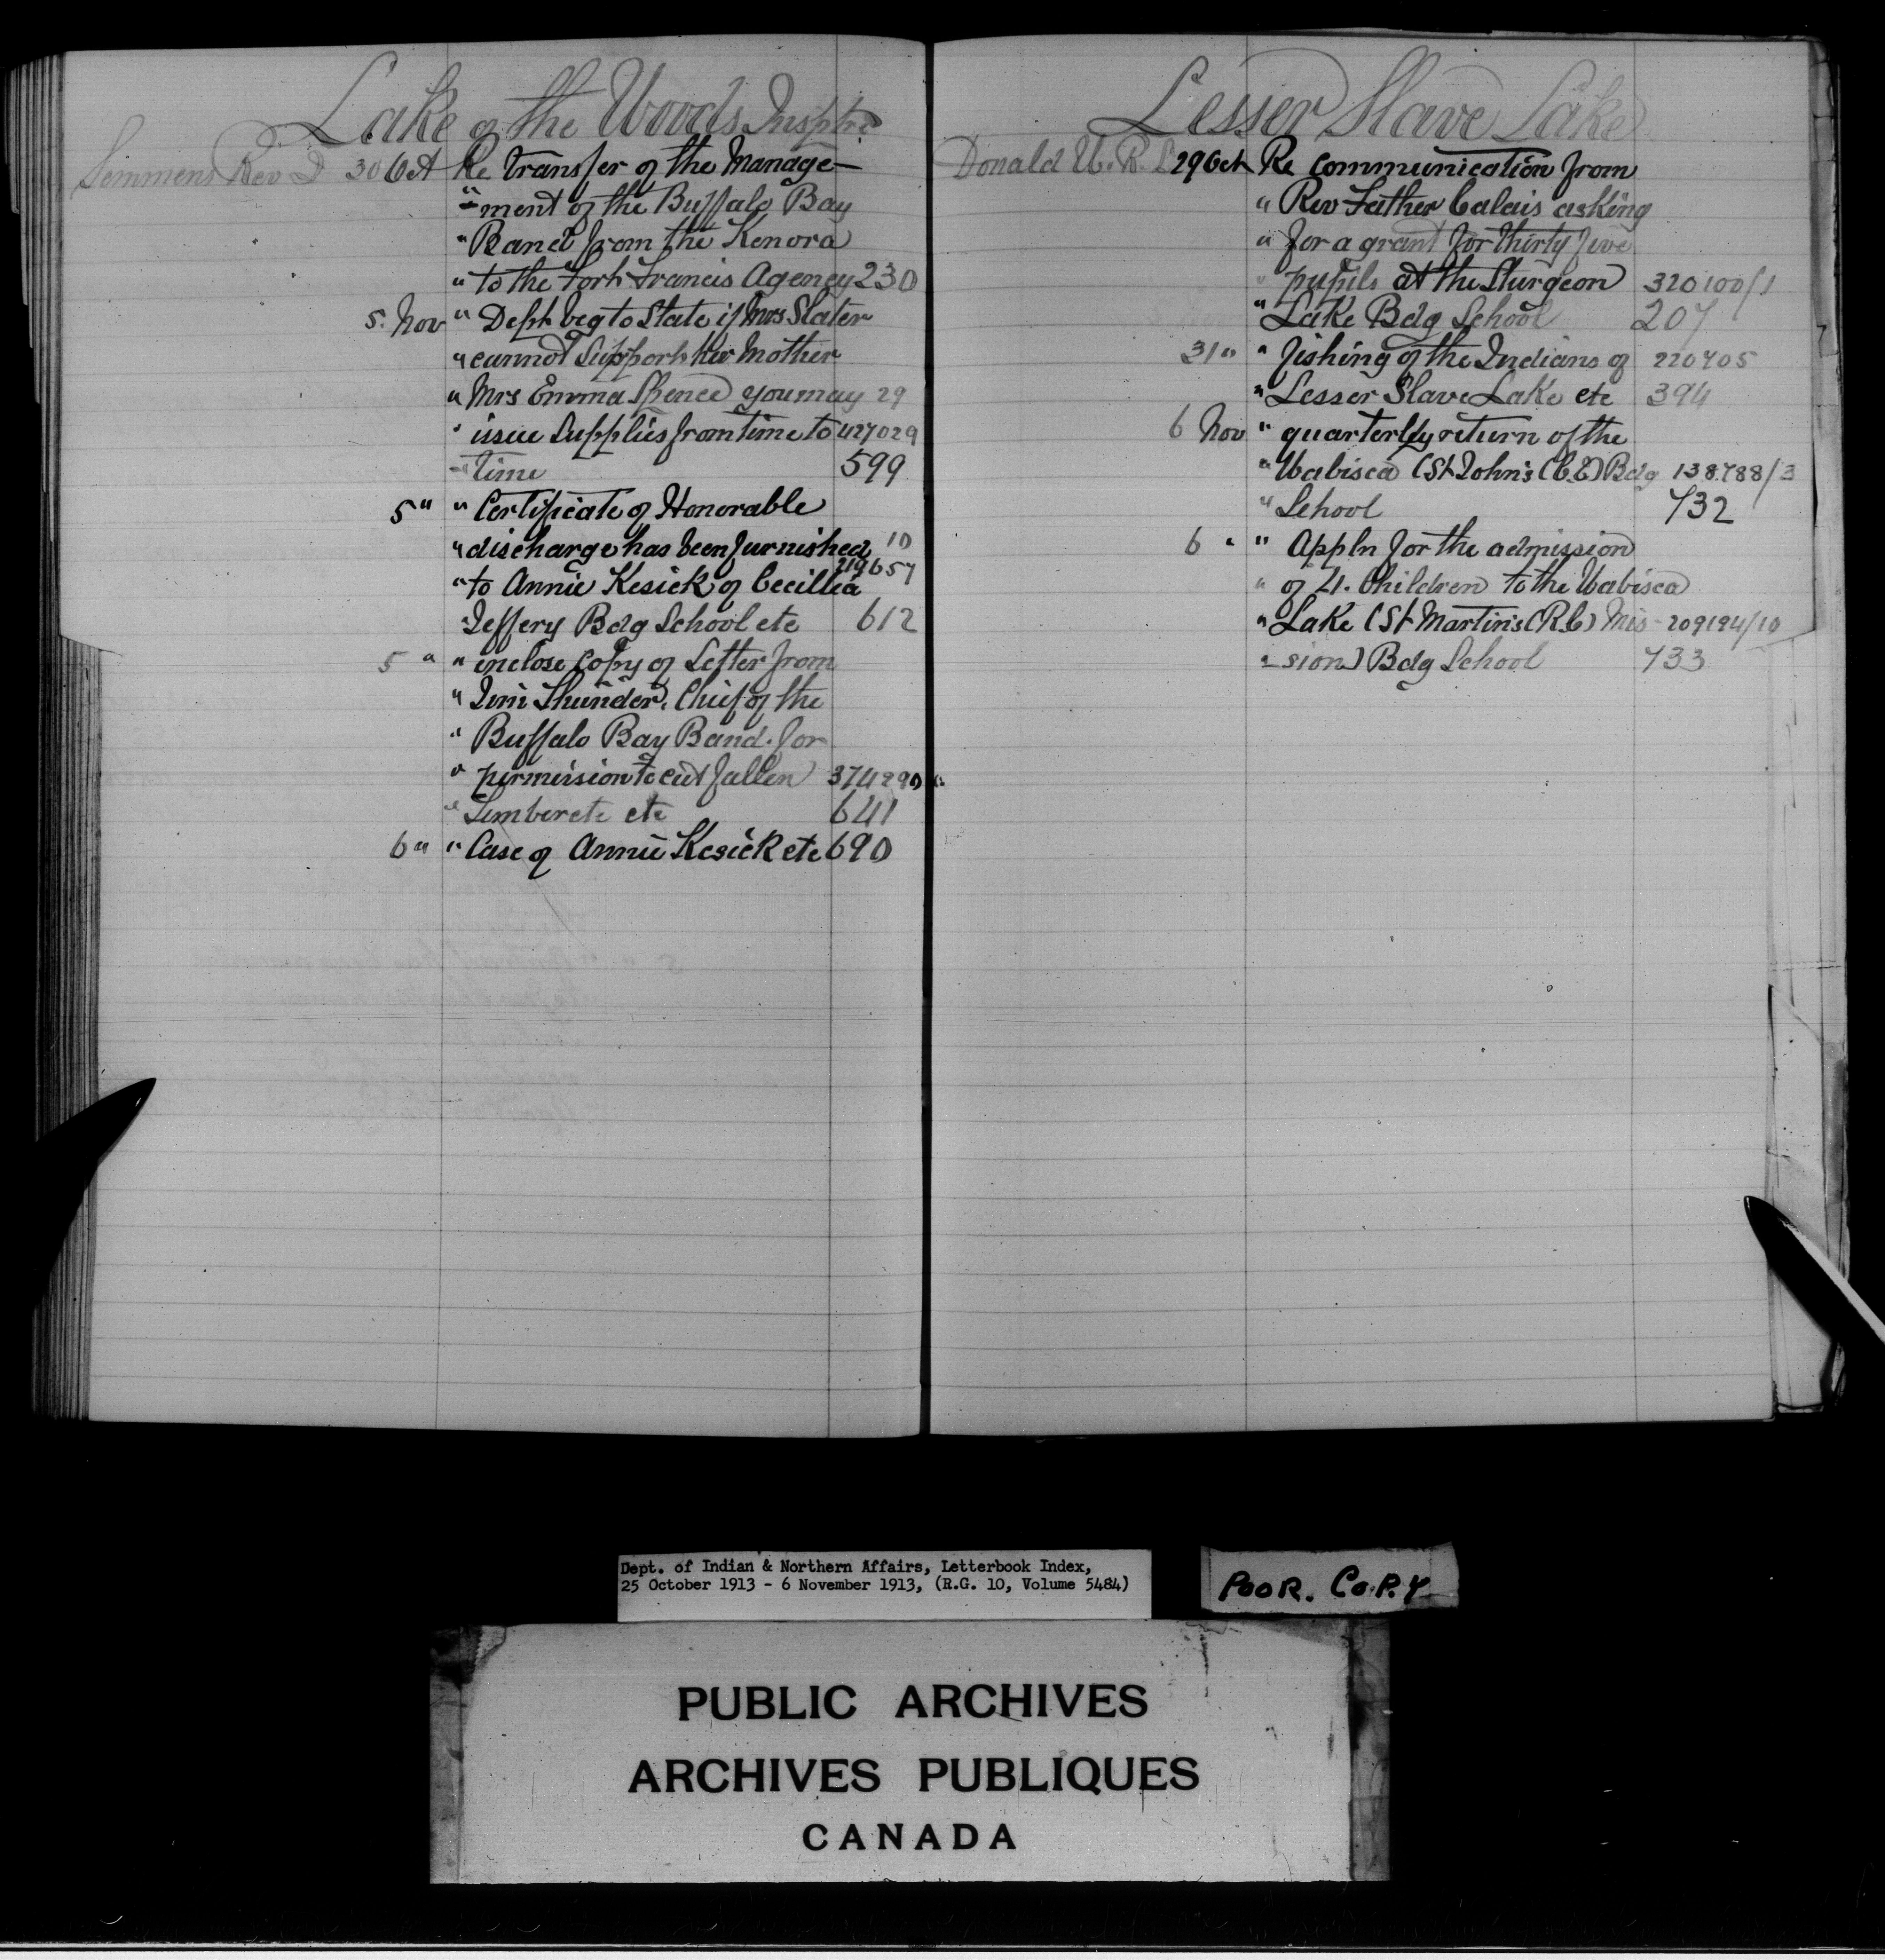 Lake of the Woods Insptre
Semmens Rev D 30 Oct Re transfer of the Manage-
" -ment of the Buffalo Bay
" Band from the Kenora
" to the Fort Francis Agency 230
5 Nov " Dept beg to State if Mrs Slater
" cannot Support her Mother
" Mrs Emma Spence you may 29
" issue Supplies from time to 427029
" time 599
5 " " Certificate of Honorable
" discharge has been furnished 10
219657
" to Annie Kesick of Cecillia
Jeffery Bdg School etc 612
5 " " enclose Copy of Letter from
" Jim Thunder, Chief of the
" Buffalo Bay Band. for
" permission to cut fallen 374290
" Timber etc etc 641
6 " " Case of Annie Kesick etc 690
Lesser Slave Lake
Donald W. R. L 29 Oct Re Communication from
" Rev Father Calais asking
" for a grant for thirty five
" pupils at the Sturgeon 320100/1
" Lake Bdg School 207
31 " " fishing of the Indians of 220705
" Lesser Slave Lake etc 394
6 Nov " quarterly return of the
" Wabisca (St John's (C.E) Bdg 138788/3
" School 732
6 " " Appln for the admission
" of 4. Children to the Wabisca
" Lake (St Martins (R.C) Mis- 209194/10
" -sion) Bdg School 733
Dept. of Indian & Northern Affairs, Letterbook Index,
25 October 1913 - 6 November 1913, (R.G. 10, Volume 5484)
POOR. COPY
PUBLIC ARCHIVES
ARCHIVES PUBLIQUES
CANADA